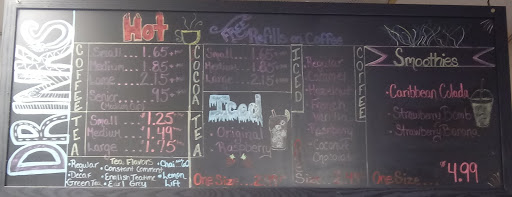 DRINKS
Hot
Free Refills on Coffee
COFFEE
Small... 1.65
Medium.. 1.85
Large... 2.15
Senior... .95
TEA
Small... $1.25
Medium... 1.49
Large... 1.75
Tea Flavors
•Regular
•Constant Comment
•Chai
•Decaf
•English Teatime
•Lemon Lift
•Green Tea
•Earl Grey
COCOA
Small... 1.65
Medium.. 1.85
Large... 2.15
Iced
TEA
•Original
•Raspberry
One Size
ICED
COFFEE
Regular
Caramel
Hazelnut
French
Raspberry
Coconut
Size 2.99
Smoothies
•Caribbean Colada
•Strawberry Bomb
•Strawberry Banana
One Size... 4.99